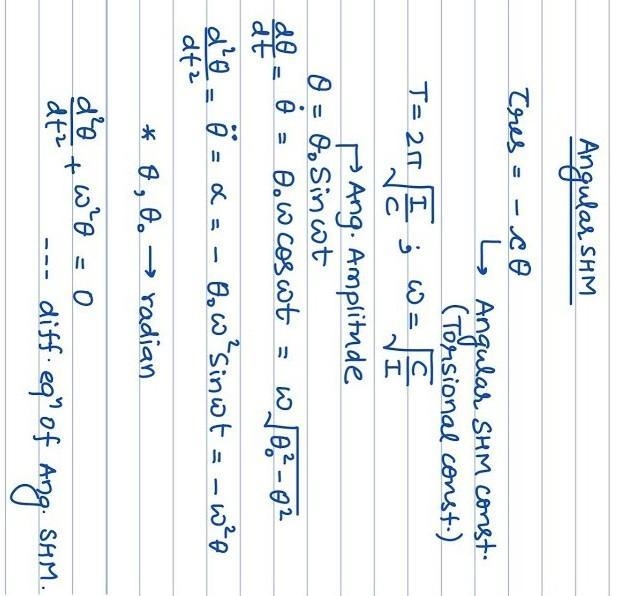 Angular SHM
τres = - cθ
↳ Angular SHM const.
(Torsional const.)
T = 2π √(I/C) ; ω = √(C/I)
↱ Ang. Amplitude
θ = θ₀ Sin ωt
dθ/dt = θ̇ = θ₀ ω cos ωt = ω √(θ₀² - θ²)
d²θ/dt² = θ̈ = α = - θ₀ ω² Sin ωt = - ω² θ
* θ, θ₀ → radian
d²θ/dt² + ω² θ = 0
--- diff. eqⁿ of Ang. SHM.